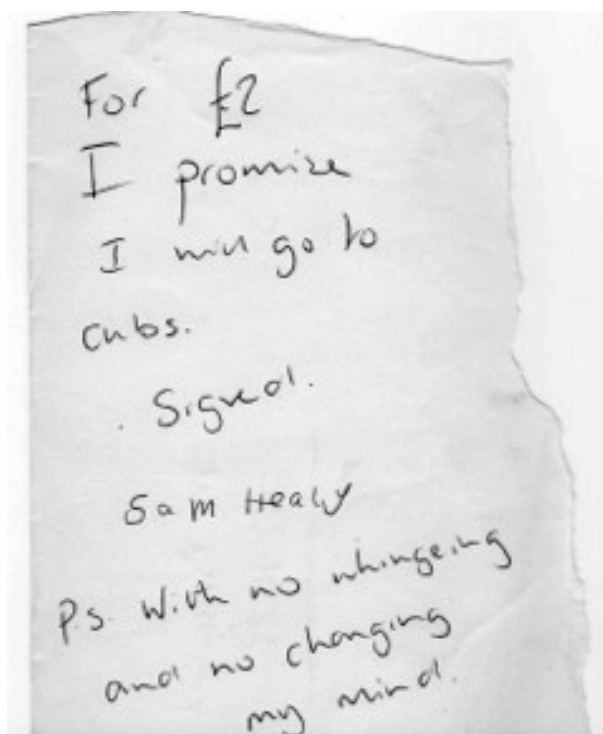 For £2
I promise
I will go to
cubs.
. Signed.
Sam Healy
P.s. With no whingeing
and no changing
my mind.